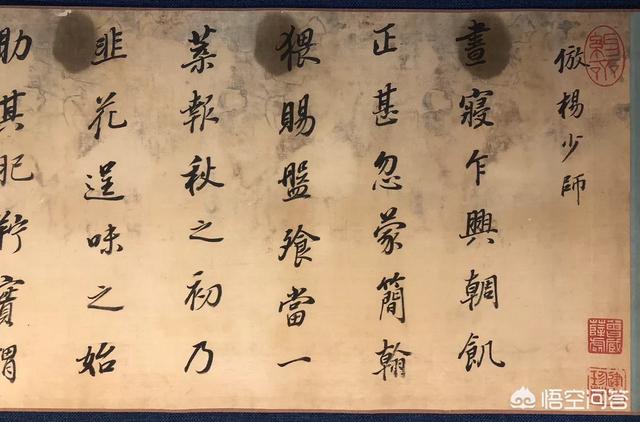 倣楊少師
晝寢乍興輖飢
正甚忽蒙簡翰
猥賜盤飱當一
葉報秋之初乃
韭花逞味之始
助其肥羜實謂
悟空问答